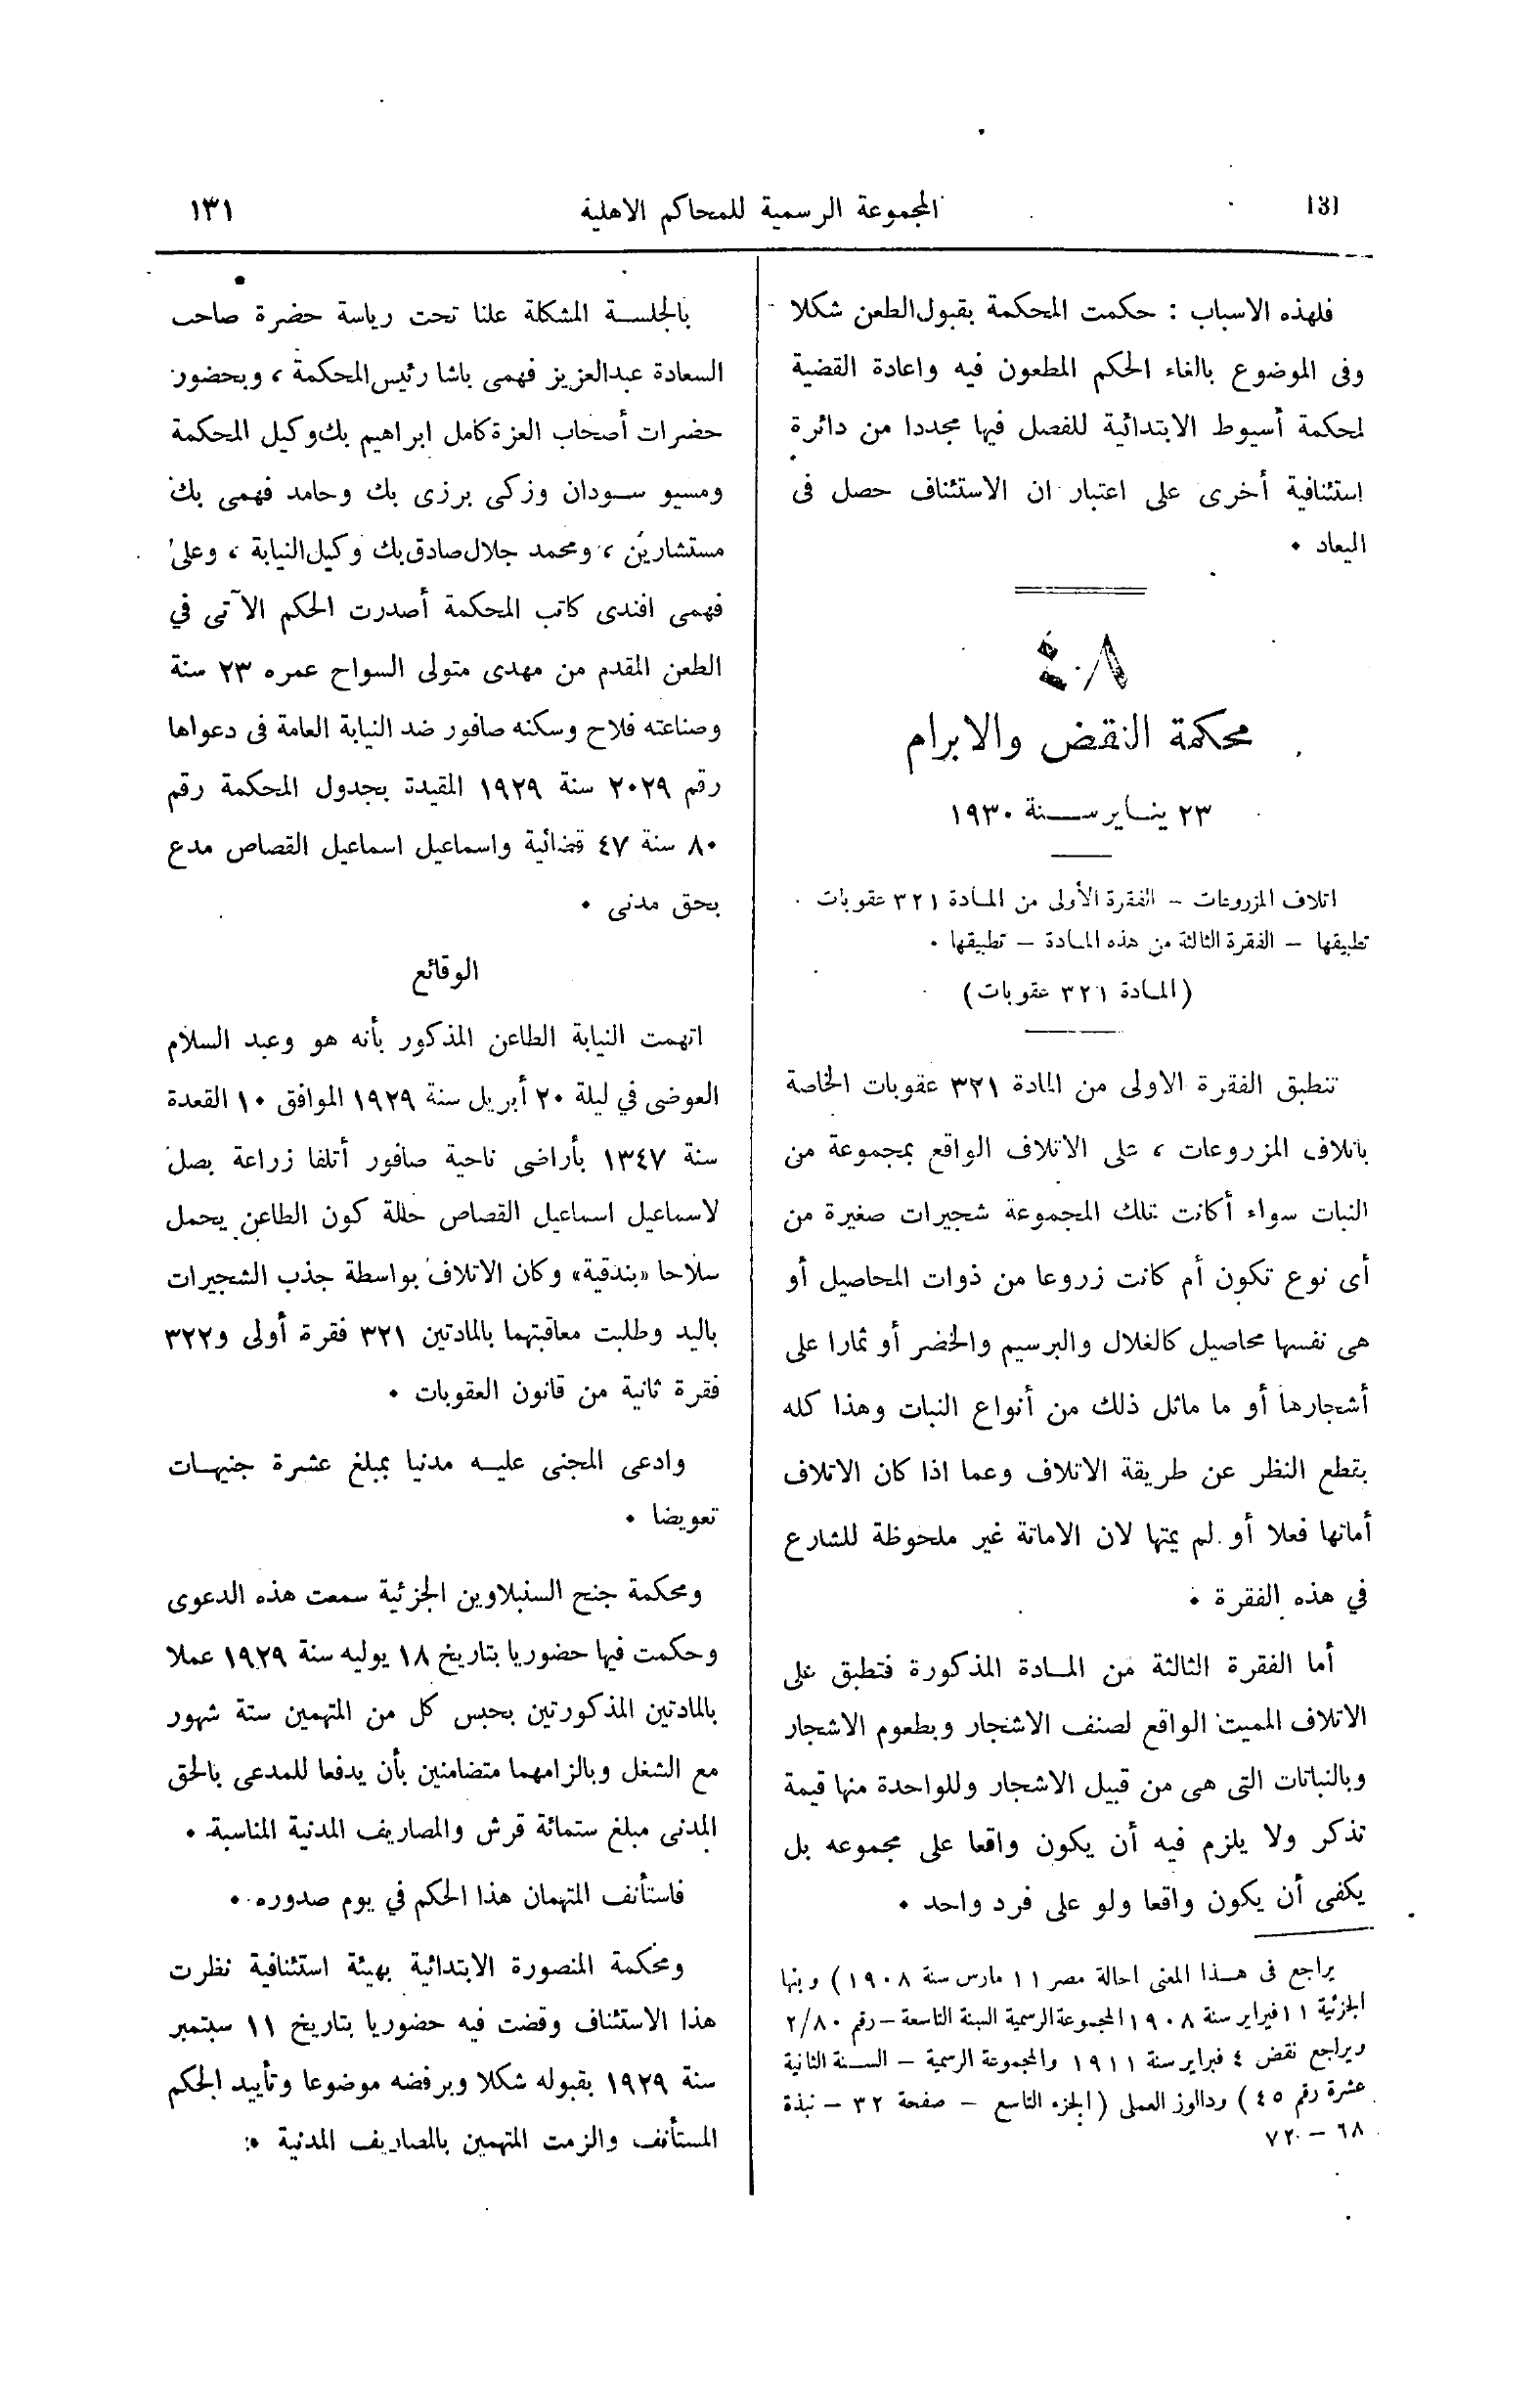 131
المجموعة الرسمية للمحاكم الاهلية
١٣١
فلهذه الاسباب : حكمت المحكمة بقبول الطعن شكلا
وفى الموضوع بالغاء الحكم المطعون فيه واعادة القضية
لمحكمة أسيوط الابتدائية للفصل فيها مجددا من دائرة
إستئنافية أخرى على اعتبار ان الاستئناف حصل فى
الميعاد ٠
محكمة النقض والابرام
٢٣ يناير سنة ١٩٣٠
اتلاف المزروعات – الفقرة الأولى من المادة ٣٢١ عقوبات ٠
تطبيقها – الفقرة الثالثة من هذه المادة – تطبيقها ٠
(المادة ٣٢١ عقوبات)
تنطبق الفقرة الاولى من المادة ٣٢١ عقوبات الخاصة
باتلاف المزروعات ، على الاتلاف الواقع بمجموعة من
النبات سواء أكانت تلك المجموعة شجيرات صغيرة من
أى نوع تكون أم كانت زروعا من ذوات المحاصيل أو
هى نفسها محاصيل كالغلال والبرسيم والخضر أو ثمارا على
أشجارها أو ما ماثل ذلك من أنواع النبات وهذا كله
بقطع النظر عن طريقة الاتلاف وعما اذا كان الاتلاف
أماتها فعلا أو لم يمتها لان الاماتة غير ملحوظة للشارع
في هذه الفقرة ٠
أما الفقرة الثالثة من المادة المذكورة فتطبق على
الاتلاف المميت الواقع لصنف الاشجار وبطعوم الاشجار
وبالنباتات التى هى من قبيل الاشجار وللواحدة منها قيمة
تذكر ولا يلزم فيه أن يكون واقعا على مجموعه بل
يكفى أن يكون واقعا ولو على فرد واحد ٠
يراجع فى هذا المعنى احالة مصر ١١ مارس سنة ١٩٠٨) وبنها
الجزئية ١١ فبراير سنة ١٩٠٨ المجموعة الرسمية السنة التاسعة – رقم ٢/٨٠
ويراجع نقض ٤ فبراير سنة ١٩١١ والمجموعة الرسمية – السنة الثانية
عشرة رقم ٤٥) ودالوز العملى (الجزء التاسع – صفحة ٣٢ – نبذة
٦٨ – ٧٢
بالجلسة المشكلة علنا تحت رياسة حضرة صاحب
السعادة عبدالعزيز فهمى باشا رئيس المحكمة ، وبحضور
حضرات أصحاب العزة كامل ابراهيم بك وكيل المحكمة
ومسيو سودان وزكى برزى بك وحامد فهمى بك
مستشارين ، ومحمد جلال صادق بك وكيل النيابة ، وعلى
فهمى افندى كاتب المحكمة أصدرت الحكم الآتى في
الطعن المقدم من مهدى متولى السواح عمره ٢٣ سنة
وصناعته فلاح وسكنه صافور ضد النيابة العامة فى دعواها
رقم ٢٠٢٩ سنة ١٩٢٩ المقيدة بجدول المحكمة رقم
٨٠ سنة ٤٧ قضائية واسماعيل اسماعيل القصاص مدع
بحق مدنى ٠
الوقائع
اتهمت النيابة الطاعن المذكور بأنه هو وعبد السلام
العوضى في ليلة ٢٠ أبريل سنة ١٩٢٩ الموافق ١٠ القعدة
سنة ١٣٤٧ بأراضى ناحية صافور أتلفا زراعة بصل
لاسماعيل اسماعيل القصاص حالة كون الطاعن يحمل
سلاحا «بندقية» وكان الاتلاف بواسطة جذب الشجيرات
باليد وطلبت معاقبتهما بالمادتين ٣٢١ فقرة أولى و٣٢٢
فقرة ثانية من قانون العقوبات ٠
وادعى المجنى عليه مدنيا بمبلغ عشرة جنيهات
تعويضا ٠
ومحكمة جنح السنبلاوين الجزئية سمعت هذه الدعوى
وحكمت فيها حضوريا بتاريخ ١٨ يوليه سنة ١٩٢٩ عملا
بالمادتين المذكورتين بحبس كل من المتهمين ستة شهور
مع الشغل وبالزامهما متضامنين بأن يدفعا للمدعى بالحق
المدنى مبلغ ستمائة قرش والمصاريف المدنية المناسبة ٠
فاستأنف المتهمان هذا الحكم في يوم صدوره ٠
ومحكمة المنصورة الابتدائية بهيئة استئنافية نظرت
هذا الاستئناف وقضت فيه حضوريا بتاريخ ١١ سبتمبر
سنة ١٩٢٩ بقبوله شكلا وبرفضه موضوعا وتأييد الحكم
المستأنف والزمت المتهمين بالمصاريف المدنية ٠